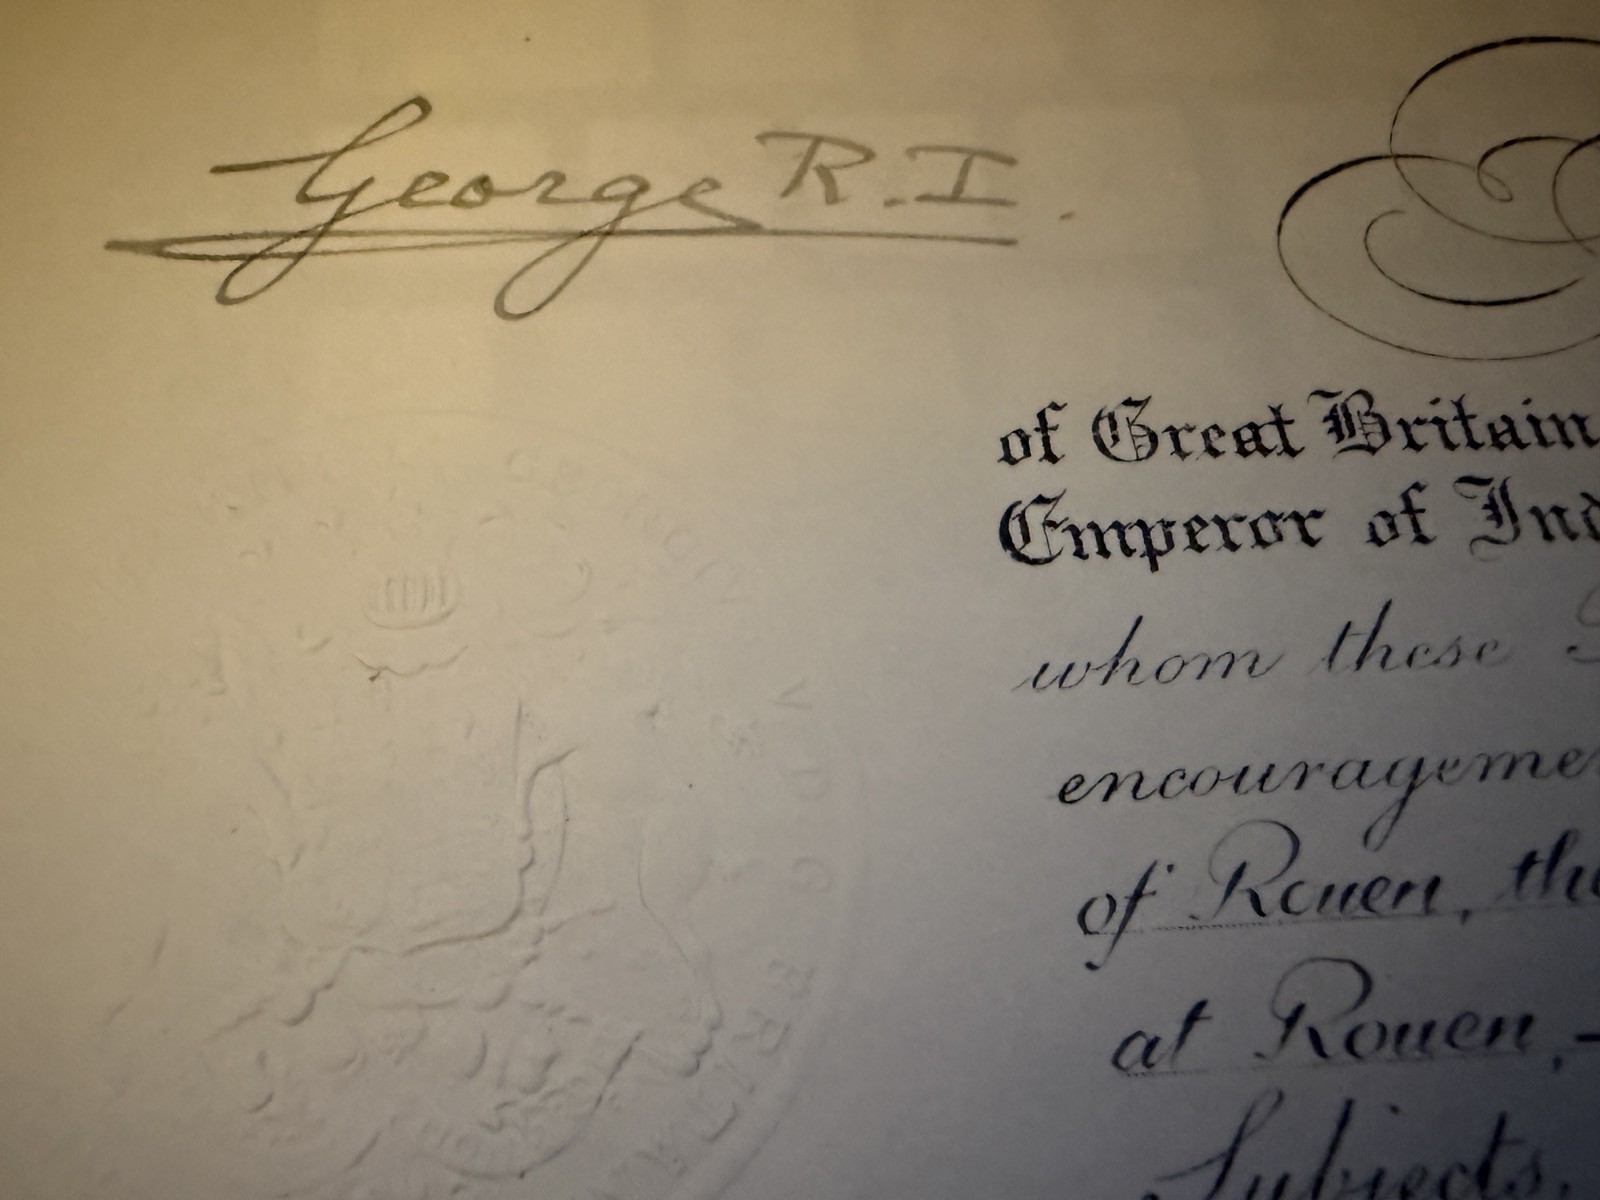 George R.I.
of Great Britain,
Emperor of Ind
whom these
encourageme
of Rouen, the
at Rouen, -
Subjects.